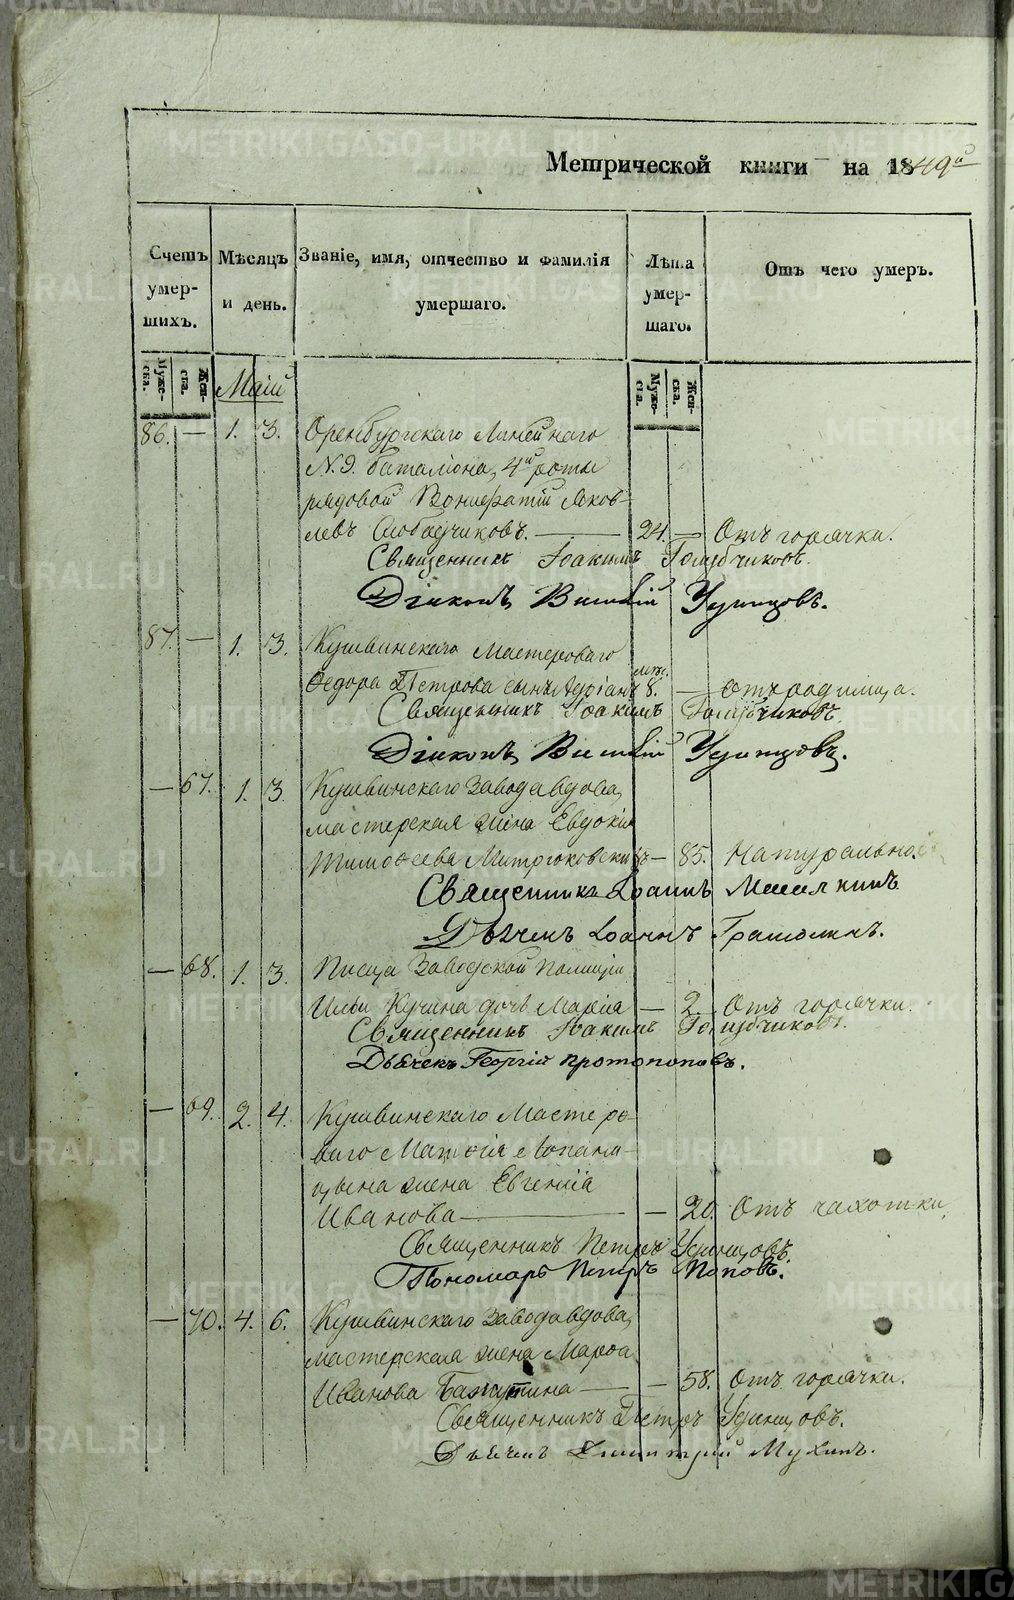 Метрической книги на 1849й
Счетъ умер-шихъ.
Мѣсяцъ и день.
Званіе, имя, отчество и фамилія умершаго.
Лѣта умер-шаго.
Отъ чего умеръ.
Муже-ска.
Жен-ска.
Муже-ска.
Жен-ска.
Маій
86. — 1. 3. Оренбургскаго Линейнаго
N. 9. баталіона, 4й роты
рядовой Вонифатій Яков-
левъ Слободчиковъ. — 24. — Отъ горячки.
Священникъ Іоакимъ Голубчиковъ.
Діаконъ Василій Удинцовъ.
87. — 1. 3. Кушвинскаго Мастероваго
Ѳедора Петрова сынъ Адріанъ 8. мѣс. — Отъ родимца.
Священникъ Іоакимъ Голубчиковъ.
Діаконъ Василій Удинцовъ.
— 67. 1. 3. Кушвинскаго Завода вдова,
мастерская жена Евдокія
Тимоѳеева — 85. Натурально.
Священникъ Іоаннъ
Дьячекъ Іоаннъ
— 68. 1. 3. Писца Заводской Полиціи
Ильи Кучина дочь Марія — 2. Отъ горячки.
Священникъ Іоакимъ Голубчиковъ.
Дьячекъ Георгій Протопоповъ.
— 69. 2. 4. Кушвинскаго Мастеро-
ваго Матѳія Лопани-
цына жена Евгенія
Иванова — — 20. Отъ чахотки.
Священникъ Петръ Удинцовъ.
Пономарь Петръ Поповъ.
— 70. 4. 6. Кушвинскаго Завода вдова,
мастерская жена Марѳа
Иванова — — 58. Отъ горячки.
Священникъ Петръ Удинцовъ.
Дьячекъ Димитрій Мухинъ.
METRIKI.GASO-URAL.RU